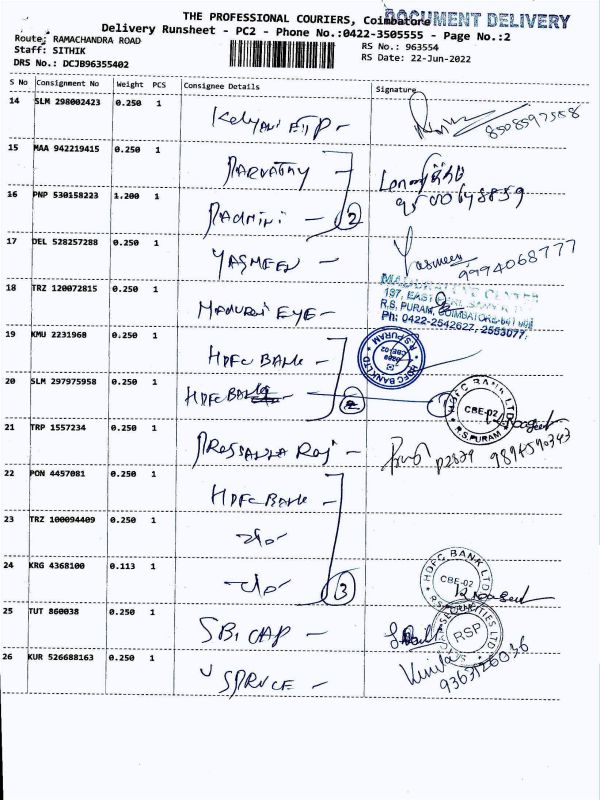 THE PROFESSIONAL COURIERS, Coimbatore
DOCUMENT DELIVERY
Delivery Runsheet - PC2 - Phone No.:0422-3505555 - Page No.:2
Route: RAMACHANDRA ROAD
RS No.: 963554
Staff: SITHIK
RS Date: 22-Jun-2022
DRS No.: DCJB96355402
S No Consignment No Weight PCS Consignee Details Signature
14 SLM 298002423 0.250 1
8508597558
15 MAA 942219415 0.250 1 PARVATHY
16 PNP 530158223 1.200 1 PADMINI 2
17 DEL 528257288 0.250 1 YASMEEN Yasmeen
9994068777
18 TRZ 120072815 0.250 1 MADURAI EYE
187, EAST
R.S. PURAM, COIMBATORE-641 002
Ph: 0422-2542627, 2553077,
19 KMU 2231968 0.250 1 HDFC BANK
HDFC BANK LTD R.S.PURAM
CBE-02
20 SLM 297975958 0.250 1 HDFC BANK
HDFC BANK LTD
CBE-02
R.S.PURAM
21 TRP 1557234 0.250 1 PRASSANNA RAJ
9894590343
22 PON 4457081 0.250 1 HDFC BANK
23 TRZ 100094409 0.250 1
24 KRG 4368100 0.113 1 3
HDFC BANK LTD
CBE-02
25 TUT 860038 0.250 1 SBI CAP
RSP
26 KUR 526688163 0.250 1 SPRUCE
9363126036